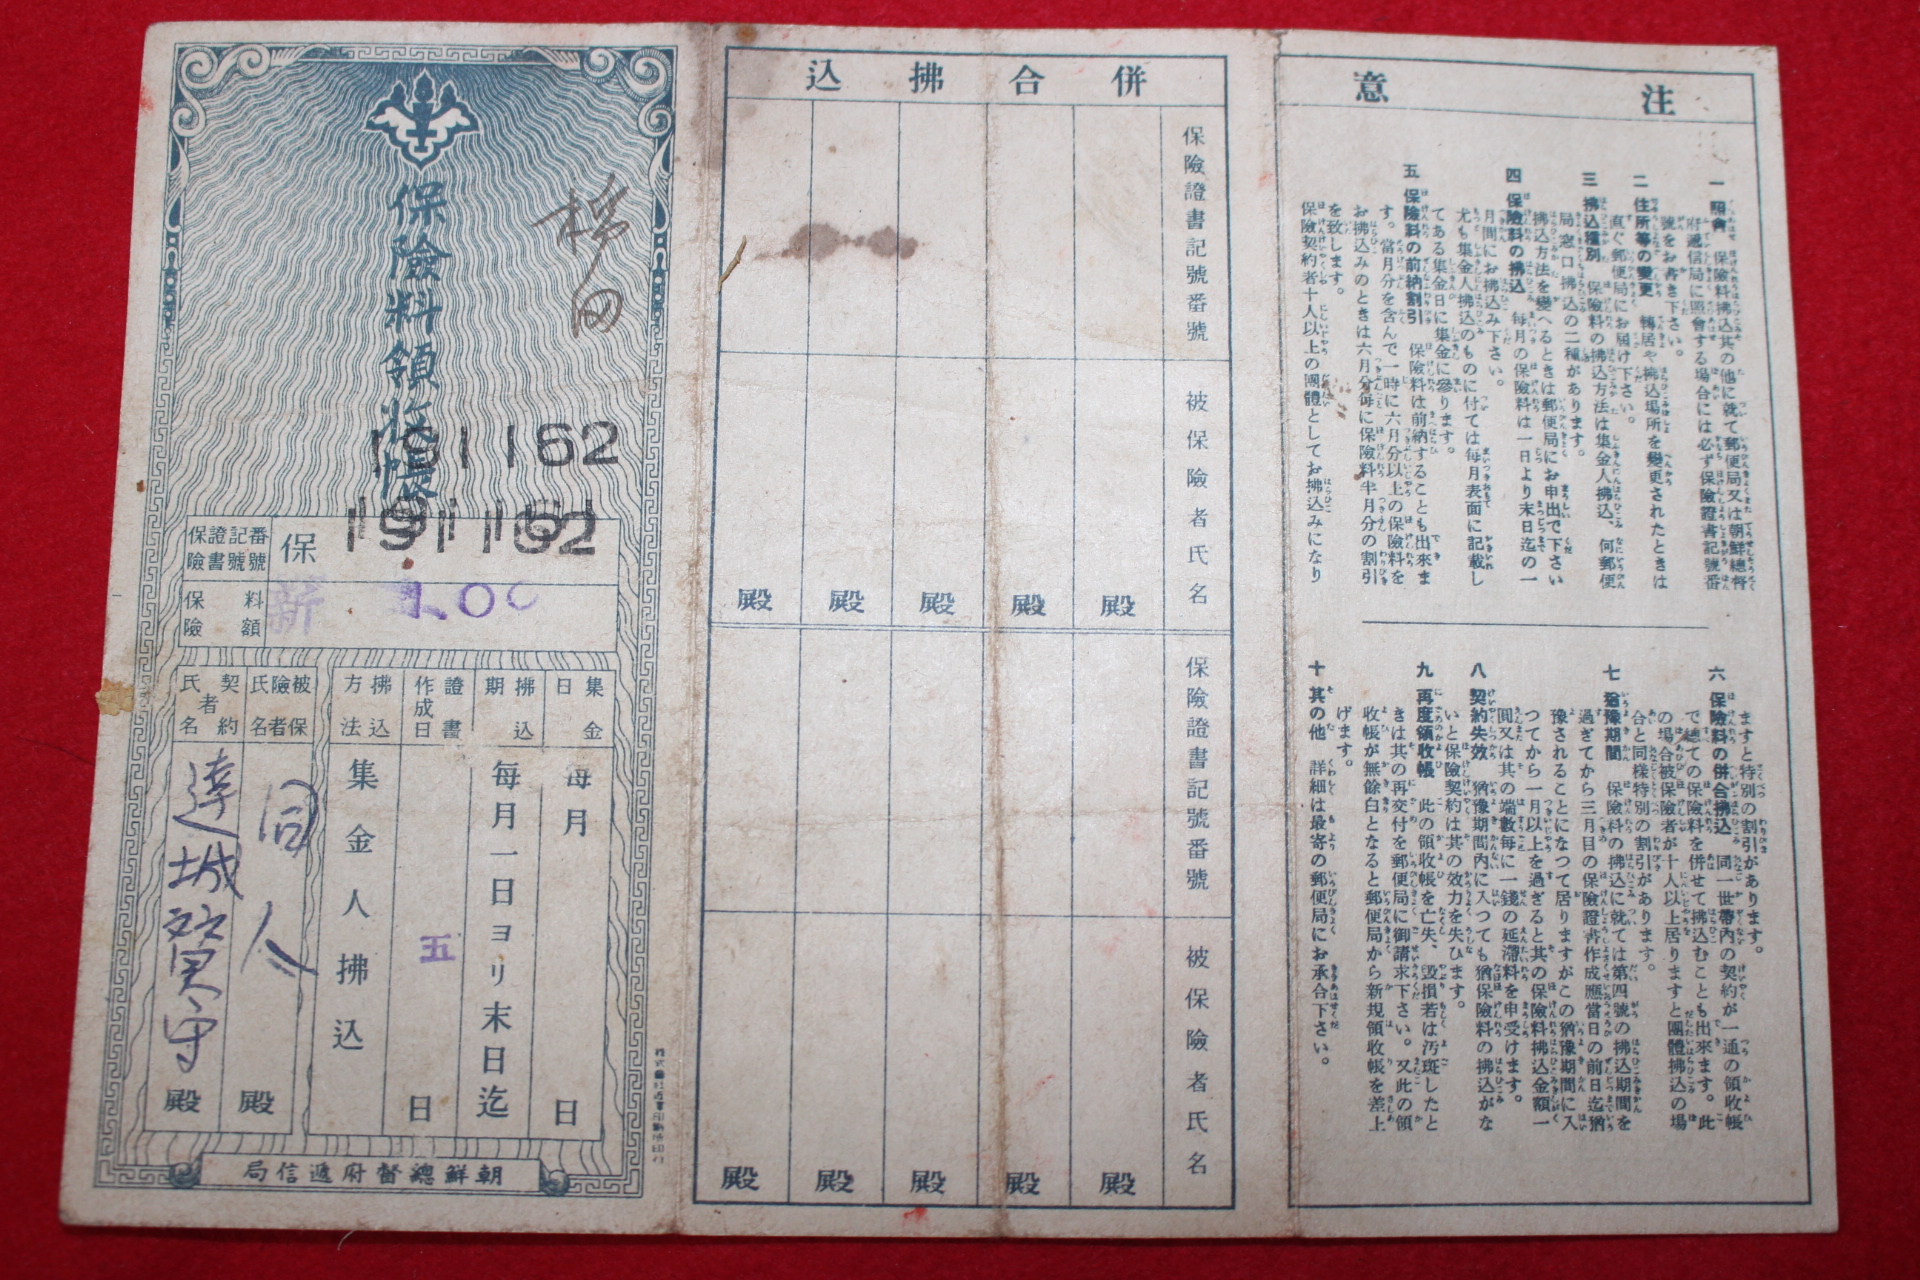 保險料領收帳
191162
191162
保險證書記號番號
保
保險料額
新 1.00
集金日
每月 日
拂込期
每月一日ヨリ末日迄
證書作成日
五 日
拂込方法
集金人拂込
被保險者氏名
同人 殿
契約者氏名
達城賢守 殿
朝鮮總督府遞信局
併合拂込
保險證書記號番號
被保險者氏名
殿 殿 殿 殿 殿
保險證書記號番號
被保險者氏名
殿 殿 殿 殿 殿
注意
一 照會 保險料拂込其の他に就て郵便局又は朝鮮總督
府遞信局に照會する場合には必ず保險證書記號番
號をお書き下さい。
二 住所等の變更 轉居や拂込場所を變更されたときは
直ぐ郵便局にお届け下さい。
三 拂込種別 保險料の拂込方法は集金人拂込、何郵便
局窓口拂込の二種があります。
拂込方法を變へるときは郵便局にお申出で下さい
四 保險料の拂込 每月の保險料は一日より末日迄の一
月間にお拂込み下さい。
尤も集金人拂込のものに付ては每月表面に記載し
てある集金日に集金に參ります。
五 保險料の前納割引 保險料は前納することも出來ま
す。當月分を含んで一時に六月分以上の保險料を
お拂込みのときは六月分每に保險料半月分の割引
を致します。
保險契約者十人以上の團體としてお拂込みになり
ますと特別の割引があります。
六 保險料の併合拂込 同一世帶內の契約が一通の領收帳
で總ての保險料を併せて拂込むことも出來ます。此
の場合被保險者が十人以上居りますと團體拂込の場
合と同樣特別の割引があります。
七 猶豫期間 保險料の拂込に就ては第四號の拂込期間を
過ぎてから三月目の保險證書作成應當日の前日迄猶
豫されることになつて居りますがこの猶豫期間に入
つてから一月以上を過ぎると其の保險料拂込金額一
圓又は其の端數每に一錢の延滯料を申受けます。
八 契約失效 猶豫期間內に入つても猶保險料の拂込がな
いと保險契約は其の效力を失ひます。
九 再度領收帳 此の領收帳を亡失、毀損若は汚斑したと
きは其の再交付を郵便局に御請求下さい。又此の領
收帳が無餘白となると郵便局から新規領收帳を差上
げます。
十 其の他 詳細は最寄の郵便局にお承合下さい。